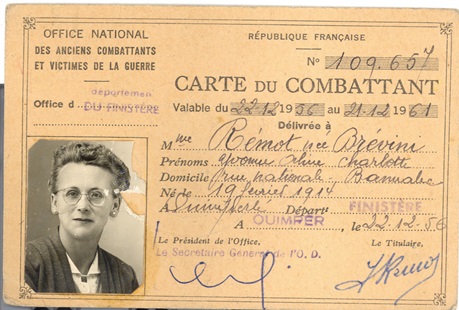 OFFICE NATIONAL
DES ANCIENS COMBATTANTS
ET VICTIMES DE LA GUERRE
département
Office d DU FINISTÈRE
RÉPUBLIQUE FRANÇAISE
Nº 109.657
CARTE DU COMBATTANT
Valable du 22.12 1956 au 21.12 1961
Délivrée à
Mme Rémot née Brévini
Prénoms Yvonne Charlotte
Domicile rue national. Bannalec
Né le 19 février 1914
A Quimperlé Départt FINISTÈRE
A QUIMPER, le 22.12.56
Le Président de l'Office.
Le Titulaire,
Le Secrétaire Général de l'O. D.